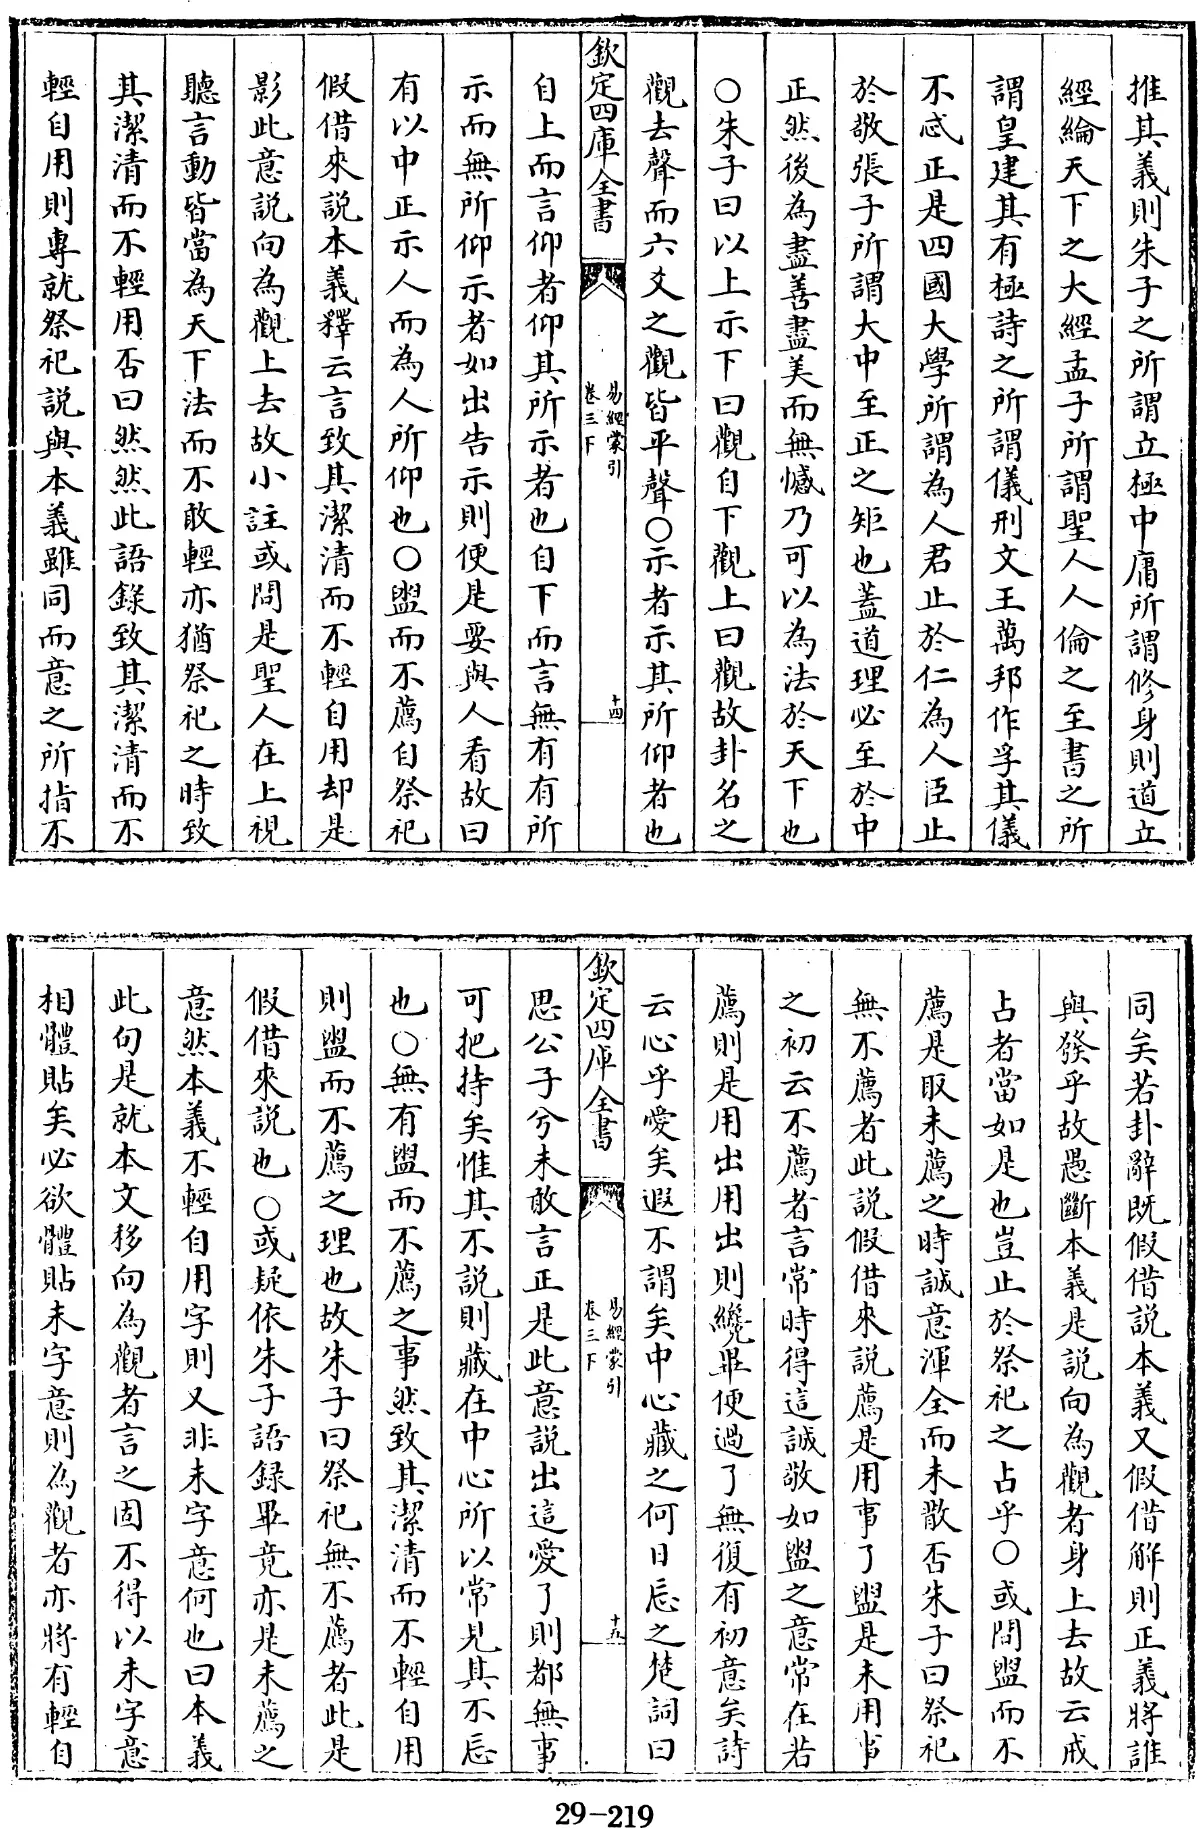 推其義則朱子之所謂立極中庸所謂修身則道立
經綸天下之大經孟子所謂聖人人倫之至書之所
謂皇建其有極詩之所謂儀刑文王萬邦作孚其儀
不忒正是四國大學所謂為人君止於仁為人臣止
於敬張子所謂大中至正之矩也蓋道理必至於中
正然後為盡善盡美而無憾乃可以為法於天下也
○朱子曰以上示下曰觀自下觀上曰觀故卦名之
觀去聲而六爻之觀皆平聲○示者示其所仰者也
欽定四庫全書
易經蒙引
卷三下
十四
自上而言仰者仰其所示者也自下而言無有有所
示而無所仰示者如出告示則便是要與人看故曰
有以中正示人而為人所仰也○盥而不薦自祭祀
假借來說本義釋云言致其潔清而不輕自用却是
影此意說向為觀上去故小註或問是聖人在上視
聽言動皆當為天下法而不敢輕亦猶祭祀之時致
其潔清而不輕用否曰然然此語錄致其潔清而不
輕自用則專就祭祀說與本義雖同而意之所指不
同矣若卦辭既假借說本義又假借解則正義將誰
與發乎故愚斷本義是說向為觀者身上去故云戒
占者當如是也豈止於祭祀之占乎○或問盥而不
薦是取未薦之時誠意渾全而未散否朱子曰祭祀
無不薦者此說假借來說薦是用事了盥是未用事
之初云不薦者言常時得這誠敬如盥之意常在若
薦則是用出用出則纔畢便過了無復有初意矣詩
云心乎愛矣遐不謂矣中心藏之何日忘之楚詞曰
欽定四庫全書
易經蒙引
卷三下
十五
思公子兮未敢言正是此意說出這愛了則都無事
可把持矣惟其不說則藏在中心所以常見其不忘
也○無有盥而不薦之事然致其潔清而不輕自用
則盥而不薦之理也故朱子曰祭祀無不薦者此是
假借來說也○或疑依朱子語録畢竟亦是未薦之
意然本義不輕自用字則又非未字意何也曰本義
此句是就本文移向為觀者言之固不得以未字意
相體貼矣必欲體貼未字意則為觀者亦將有輕自
29-219